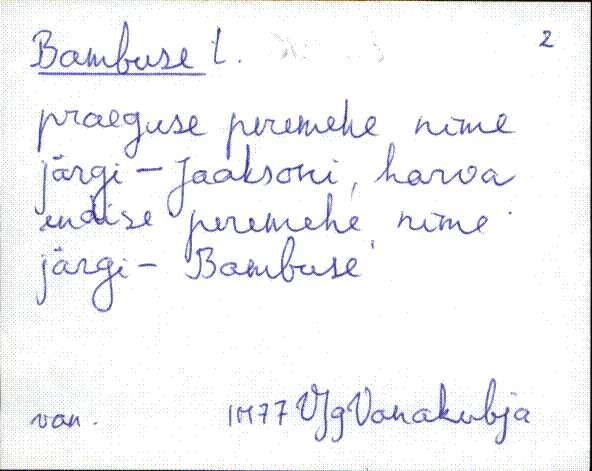 Bambuse t. 2
praeguse peremehe nime
järgi – Jaaksoni, harva
endise peremehe nime
järgi – Bambuse
van. IM77 VJg Vanakubja